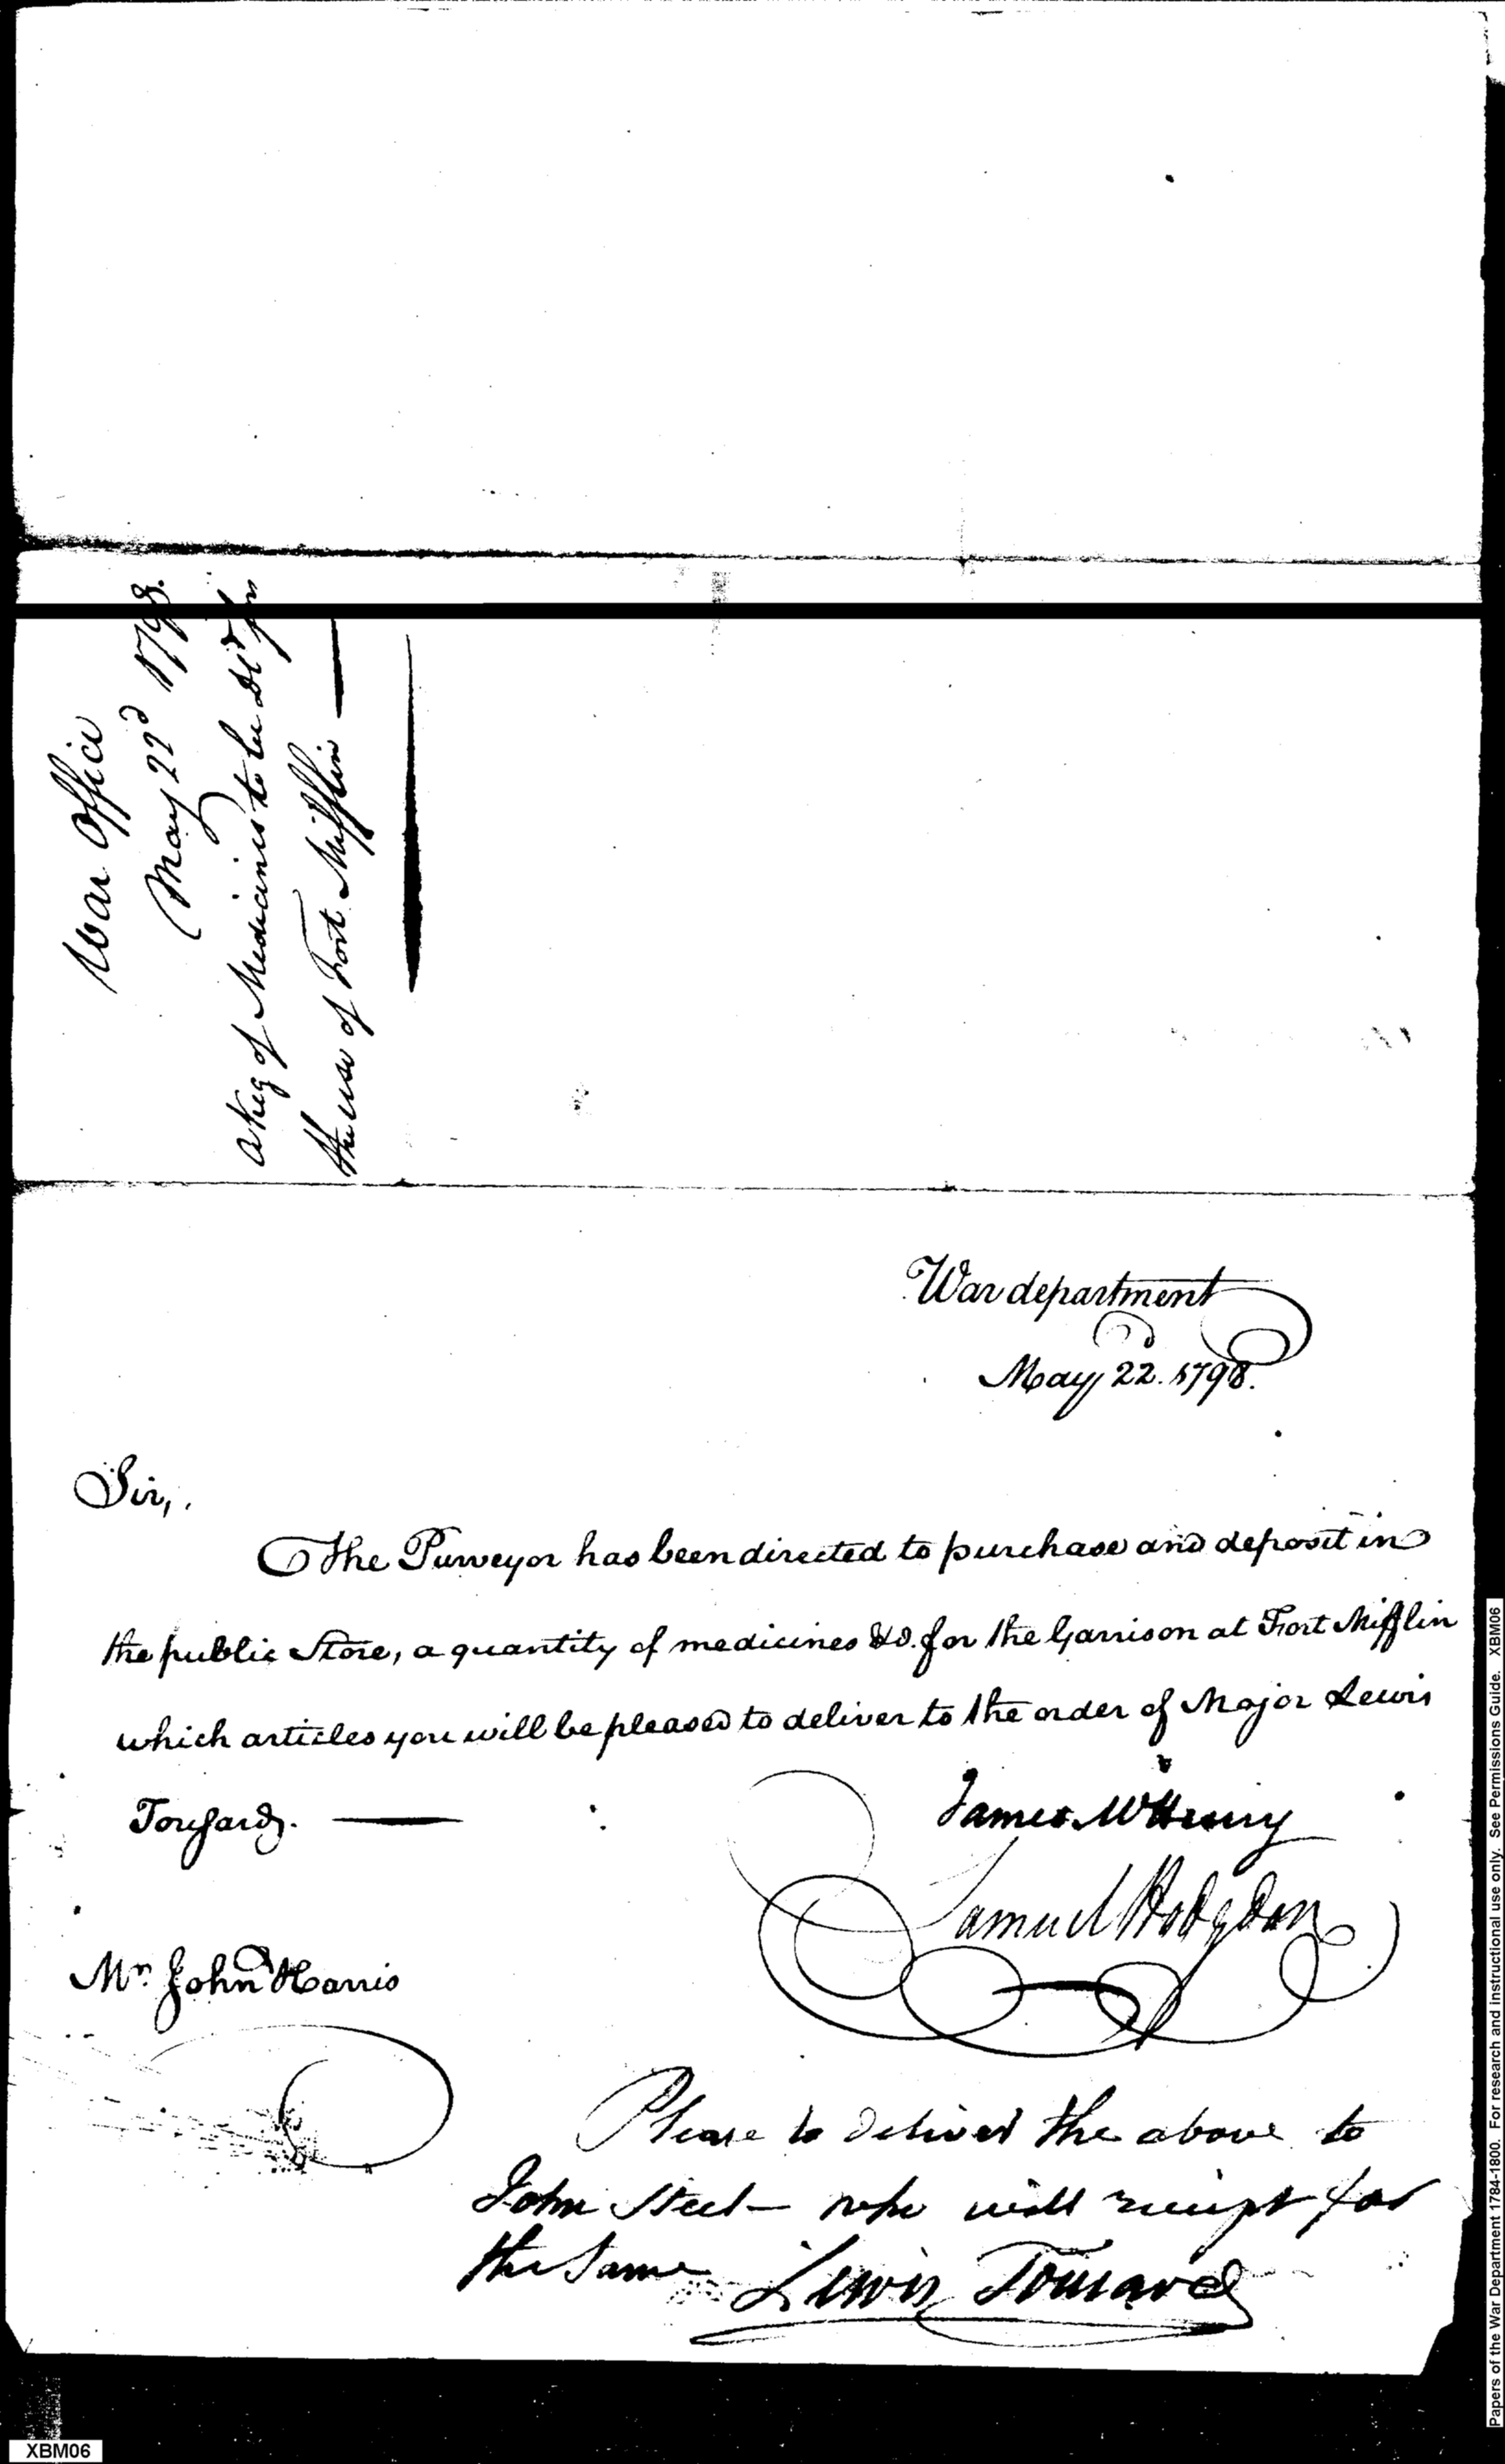 War Office
May 22d 1798.
a keg of Medicines to be Dld for
the use of Fort Mifflin
War department
May 22d. 1798.
Sir,
The Purveyor has been directed to purchase and deposit in
the public Store, a quantity of medicines &c. for the Garrison at Fort Mifflin
which articles you will be pleased to deliver to the order of Major Lewis
Tousard.
James McHenry
Samuel Hodgdon
Mr. John Harris
Please to deliver the above to
John Steel who will receipt for
the same
Lewis Tousard
XBM06
Papers of the War Department 1784-1800. For research and instructional use only. See Permissions Guide. XBM06